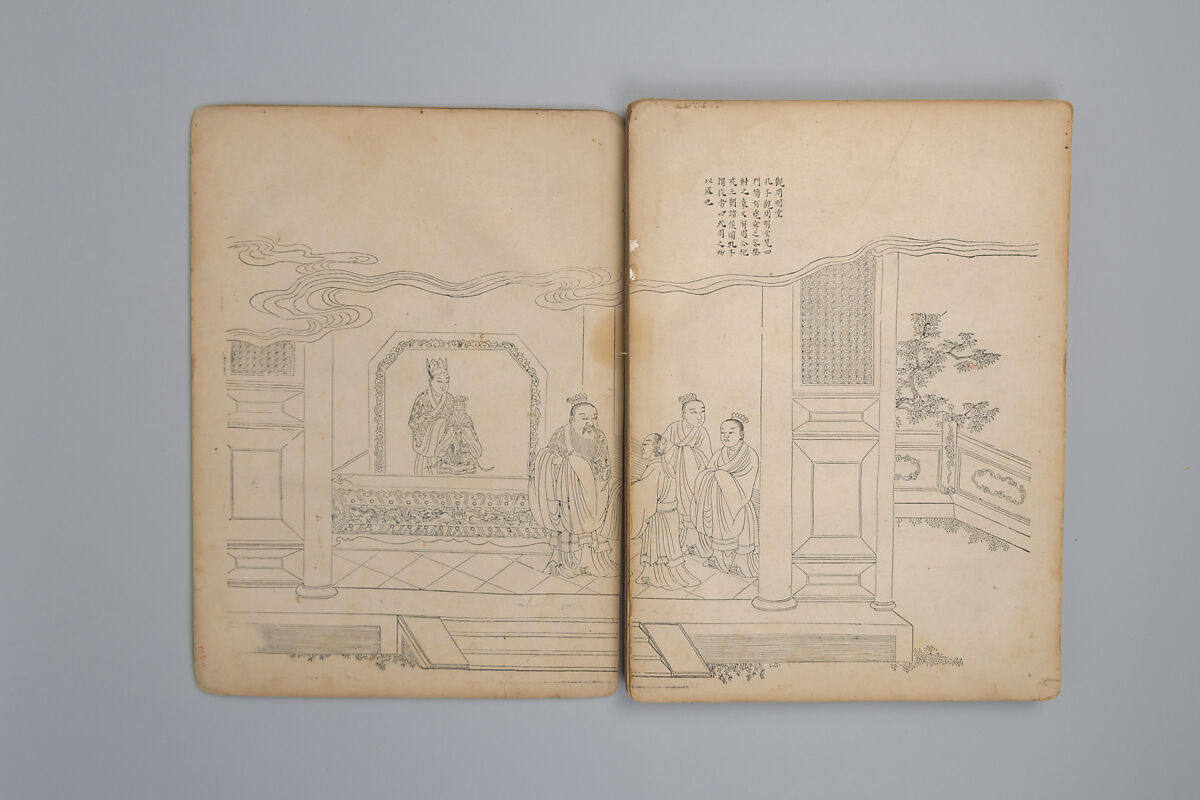 觀周明堂
孔子觀周明堂見四
門墉有堯舜之容桀
紂之象又有周公抱
成王朝諸侯圖孔子
謂從者曰此周之所
以盛也